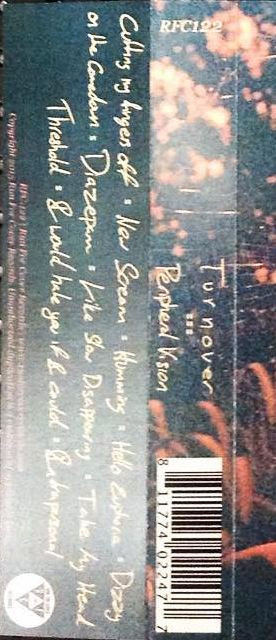 Cutting my fingers off : New Scream : Humming : Hello Euphoria : Dizzy
on the Comedown : Diazepam : Like Slow Disappearing : Take My Head
Threshold : I would hate you if I could : Intrapersonal
RFC122
Turnover
Peripheral Vision
8 11774 02247 7
RFC:122 | Run For Cover Records
Copyright 2015 Run For Cover Records. Unauthorized